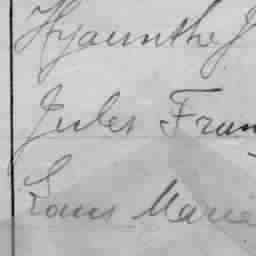 Hyacinthe J
Jules Fran
Louis Marie